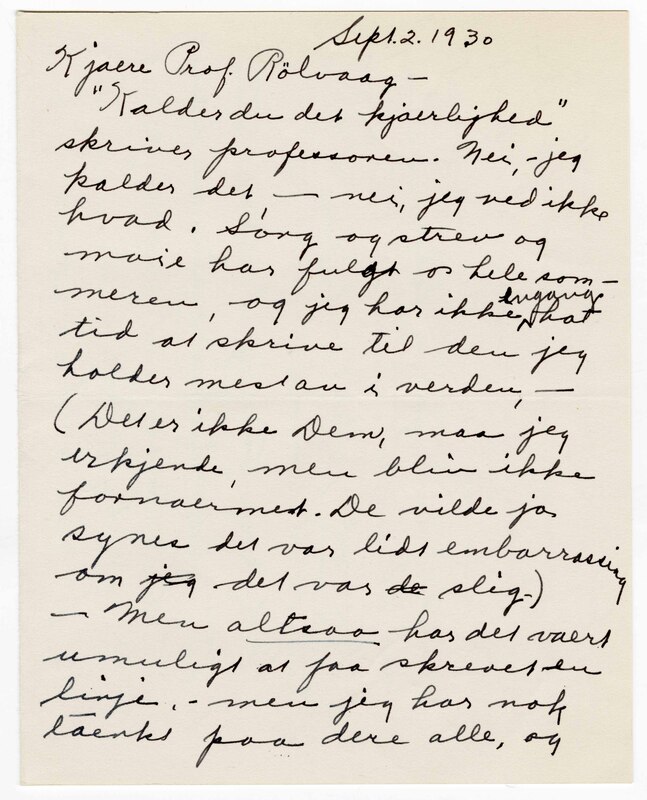 Sept. 2. 1930
Kjaere Prof. Rölvaag —
"Kalder du det kjaerlighed"
skriver professoren. Nei, - jeg
kalder det — nei, jeg ved ikke
hvad. Sorg og strev og
moie har fulgt os hele som-
meren, og jeg har ikke engang hat
tid at skrive til den jeg
holder mest av i verden, —
(Det er ikke Dem, maa jeg
erkjende, men bliv ikke
fornaermet. De vilde jo
synes det var lidt embarrassing
om jeg det var de slig.)
— Men altsaa har det vaert
umuligt at faa skrevet en
linje, - men jeg har nok
taenkt paa dere alle, og